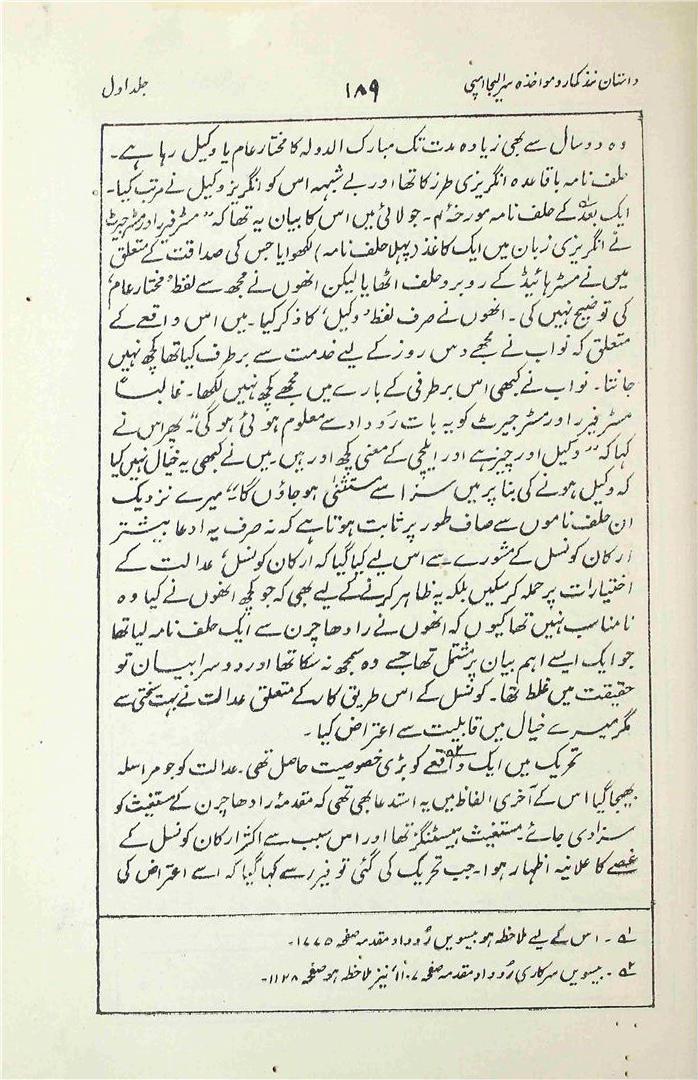 داستان نند کمار و مواخذہ سرالیجا امپی ۱۸۹ جلد اول
وہ دو سال سے بھی زیادہ مدت تک مبارک الدولہ کا مختار عام یا وکیل رہا ہے۔
حلف نامہ باقاعدہ انگریزی طرز کا تھا اور بے شبہہ اس کو انگریز وکیل نے مرتب کیا۔
ایک بعد کے حلف نامہ مورخۂ م۔ جولائی میں اس کا بیان یہ تھا کہ ”مسٹر فیرر اور مسٹر جیرٹ
نے انگریزی زبان میں ایک کاغذ (پہلا حلف نامہ) لکھوایا جس کی صداقت کے متعلق
میں نے مسٹر ہائیڈ کے روبرو حلف اٹھایا لیکن انھوں نے مجھ سے لفظ ’مختار عام‘
کی توضیح نہیں کی۔ انھوں نے صرف لفظ ’وکیل‘ کا ذکر کیا۔ میں اس واقعے کے
متعلق کہ نواب نے مجھے دس روز کے لیے خدمت سے برطرف کیا تھا کچھ نہیں
جانتا۔ نواب نے کبھی اس برطرفی کے بارے میں مجھے کچھ نہیں لکھا۔ غالباً
مسٹر فیرر اور مسٹر جیرٹ کو یہ بات روداد سے معلوم ہوئی ہوگی“۔ پھر اس نے
کہا کہ ”وکیل اور چیز ہے اور ایلچی کے معنی کچھ اور ہیں۔ میں نے کبھی یہ خیال نہیں کیا
کہ وکیل ہونے کی بنا پر میں سزا سے مستثنیٰ ہو جاؤں گا۔“ میرے نزدیک
ان حلف ناموں سے صاف طور پر ثابت ہوتا ہے کہ نہ صرف یہ ادعا بیشتر
ارکان کونسل کے مشورے سے اس لیے کیا گیا کہ ارکان کونسل، عدالت کے
اختیارات پر حملہ کر سکیں بلکہ یہ ظاہر کرنے کے لیے بھی کہ جو کچھ انھوں نے کیا وہ
نامناسب نہیں تھا کیوں کہ انھوں نے رادھا چرن سے ایک حلف نامہ لیا تھا
جو ایک ایسے اہم بیان پر مشتمل تھا جسے وہ سمجھ نہ سکا تھا اور دوسرا بیان تو
حقیقت میں غلط تھا۔ کونسل کے اس طریق کار کے متعلق عدالت نے بہت سختی سے
مگر میرے خیال میں قابلیت سے اعتراض کیا۔
تحریک میں ایک واقعے ۲؎ کو بڑی خصوصیت حاصل تھی۔ عدالت کو جو مراسلہ
بھیجا گیا اس کے آخری الفاظ میں یہ استدعا بھی تھی کہ مقدمۂ رادھا چرن کے مستغیث کو
سزا دی جائے۔ مستغیث ہیسٹنگز تھا اور اس سبب سے اکثر ارکان کونسل کے
غصے کا علانیہ اظہار ہوا۔ جب تحریک کی گئی تو فیرر سے کہا گیا کہ اسے اعتراض کی
۱؎ ۔ اس کے لیے ملاحظہ ہو بیسویں رُوداد مقدمہ صفحہ ۱۷۷۵۔
۲؎ ۔ بیسویں سرکاری رُوداد مقدمہ صفحہ ۱۱۰۷، نیز ملاحظہ ہو صفحہ ۱۱۲۸۔